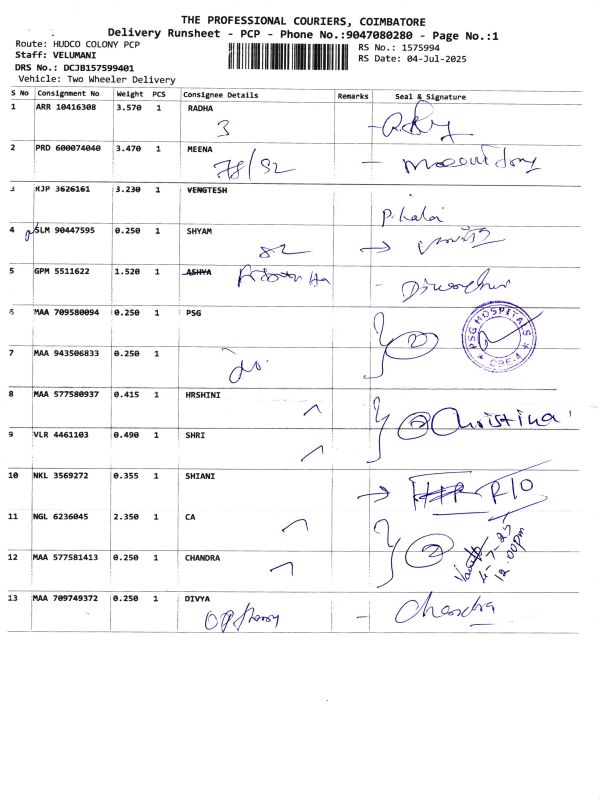 THE PROFESSIONAL COURIERS, COIMBATORE
Delivery Runsheet - PCP - Phone No.:9047080280 - Page No.:1
Route: HUDCO COLONY PCP
Staff: VELUMANI
DRS No.: DCJB157599401
Vehicle: Two Wheeler Delivery
RS No.: 1575994
RS Date: 04-Jul-2025
S No Consignment No Weight PCS Consignee Details Remarks Seal & Signature
1 ARR 10416308 3.570 1 RADHA
3
2 PRD 600074040 3.470 1 MEENA
78/92
3 KJP 3626161 3.230 1 VENGTESH
P. Kalai
4 SLM 90447595 0.250 1 SHYAM
82
5 GPM 5511622 1.520 1 ASHYA
6 MAA 709580094 0.250 1 PSG
2
PSG HOSPITALS
CBE-4
7 MAA 943506833 0.250 1
Do.
8 MAA 577580937 0.415 1 HRSHINI
2 Christina
9 VLR 4461103 0.490 1 SHRI
10 NKL 3569272 0.355 1 SHIANI
R/O
11 NGL 6236045 2.350 1 CA
2
4-7-25
12.00pm
12 MAA 577581413 0.250 1 CHANDRA
13 MAA 709749372 0.250 1 DIVYA
Chandra